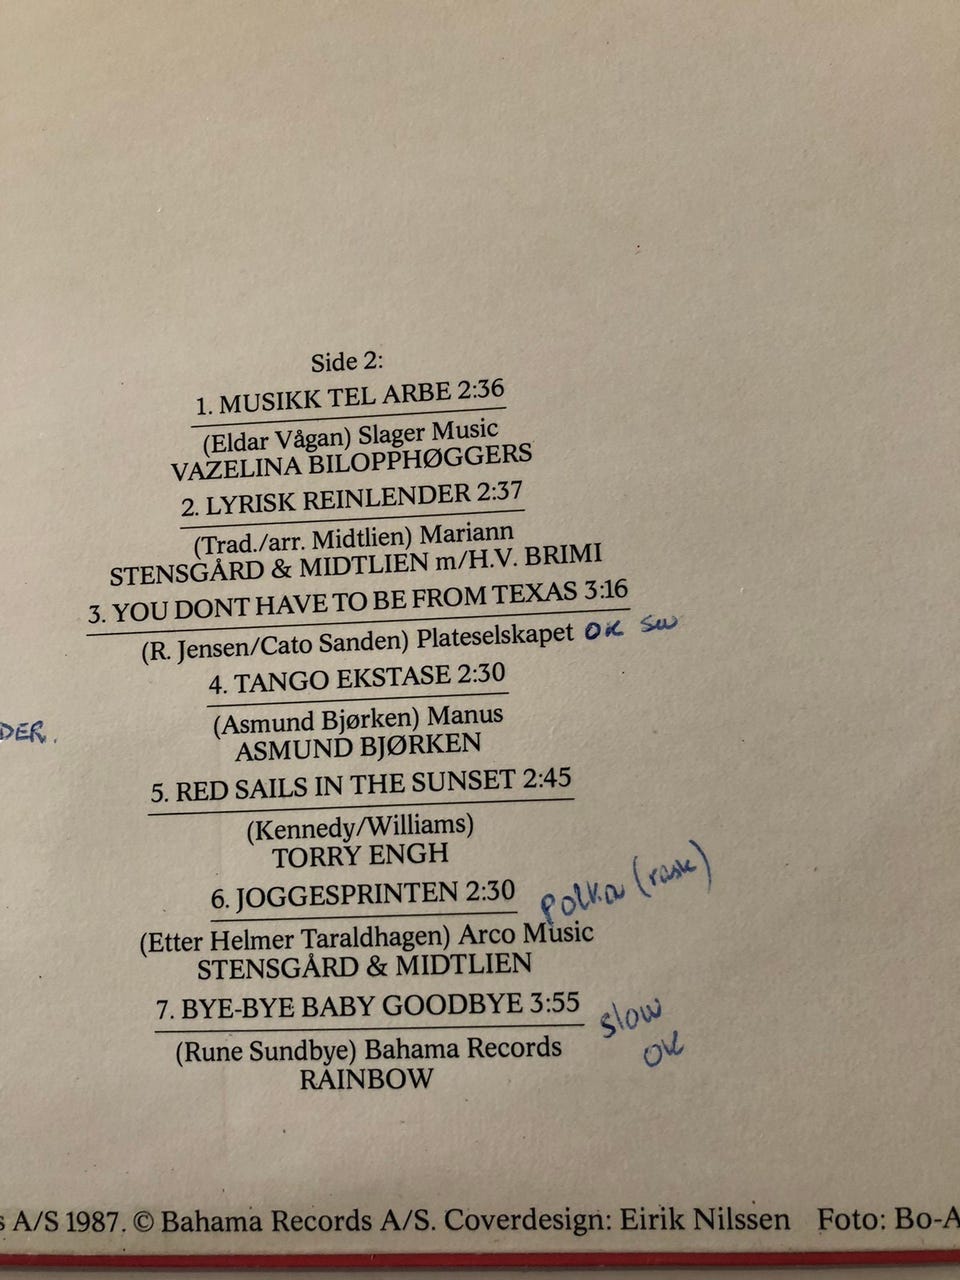 Side 2:
1. MUSIKK TEL ARBE 2:36
(Eldar Vågan) Slager Music
VAZELINA BILOPPHØGGERS
2. LYRISK REINLENDER 2:37
(Trad./arr. Midtlien) Mariann
STENSGÅRD & MIDTLIEN m/H.V. BRIMI
3. YOU DONT HAVE TO BE FROM TEXAS 3:16
(R. Jensen/Cato Sanden) Plateselskapet OK
4. TANGO EKSTASE 2:30
(Asmund Bjørken) Manus
DER.
ASMUND BJØRKEN
5. RED SAILS IN THE SUNSET 2:45
(Kennedy/Williams)
TORRY ENGH
6. JOGGESPRINTEN 2:30 polka
(Etter Helmer Taraldhagen) Arco Music
STENSGÅRD & MIDTLIEN
7. BYE-BYE BABY GOODBYE 3:55 slow
(Rune Sundbye) Bahama Records OK
RAINBOW
s A/S 1987. © Bahama Records A/S. Coverdesign: Eirik Nilssen Foto: Bo-A